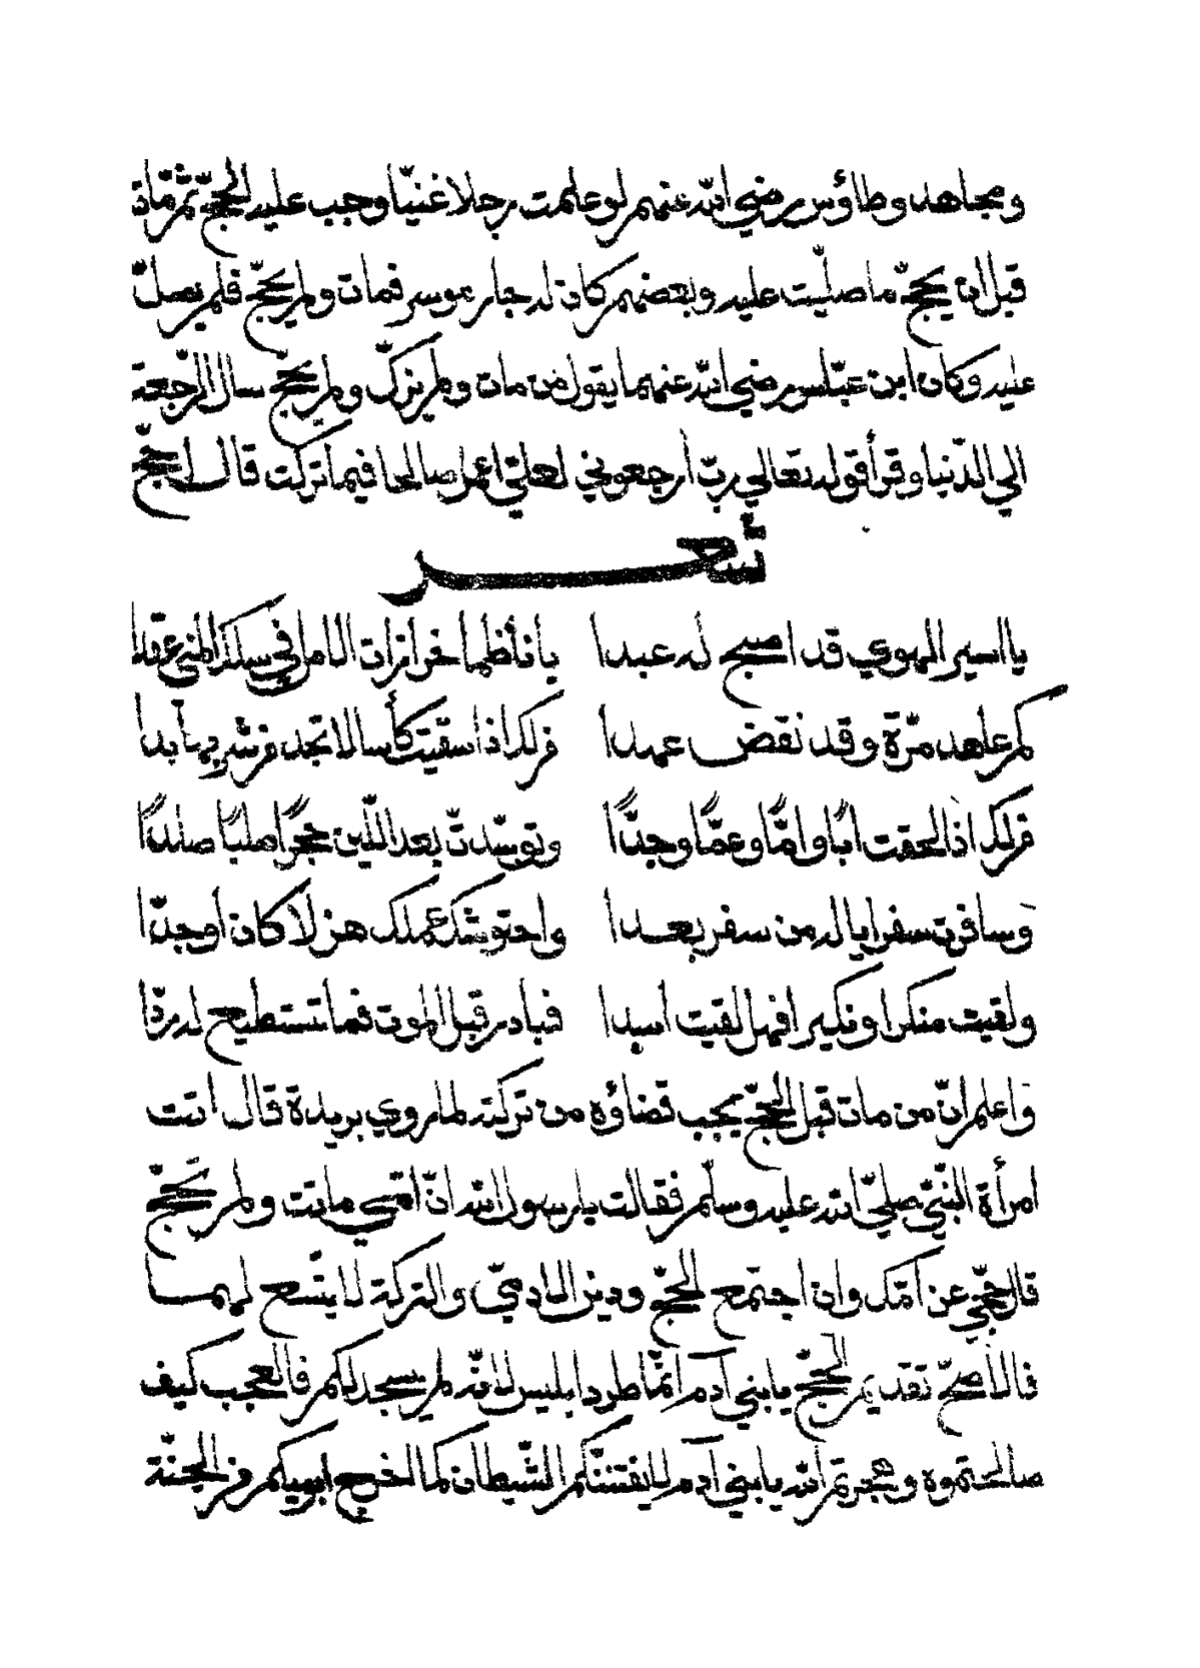 ومجاهد وطاؤس رضي الله عنهم لو علمت رجلا غنيّا وجب عليه الحجّ ثم مات
قبل ان يحجّ ما صليت عليه وبعضهم كان له جار موسر فمات ولم يحجّ فلم يصلّ
عليه وكان ابن عبّاس رضي الله عنهما يقول من مات ولم يزكّ ولم يحجّ سال الرّجعة
الي الدّنيا وقرأ قوله تعالي ربّ ارجعوني لعلّي اعمل صالحا فيما تركت قال احجّ
شعر
يا اسير الهوي قد اصبح له عبدا يا ناظما خرازات الامل في سلك المني عقدا
كم عاهد مرّة وقد نقض عهدا من لك اذا سقيت كأسا لا تجد من شربها بدا
من لك اذا لحقت ابًا وامًّا وعمًّا وجدًّا وتوسّدتّ بعد اللّين حجرًا صلبًا صلدًا
وسافرت سفرا يا له من سفر بعدا واحتوشك عملك هزلا كان أو جدّا
ولقيت منكرا ونكيرا فهل لقيت أسدا فبادر قبل الموت فما تستطيع له ردّا
واعلم انّ من مات قبل الحجّ يجب قضاؤه من تركته لما روي بريدة قال اتت
امرأة النبّي صلّي الله عليه وسلّم فقالت يا رسول الله انّ امّي ماتت ولم تحجّ
قال حجّي عن امّك وان اجتمع الحجّ ودين الادميّ والتركة لا يتّسع لهما
فالأصحّ تقديم الحجّ يا بني آدم انّما طرد ابليس لانّه لم يسجد لكم فالعجب كيف
صالحتموه وهجرتم الله يا بني آدم لا يفتننّكم الشّيطان كما اخرج ابويكم من الجنّة